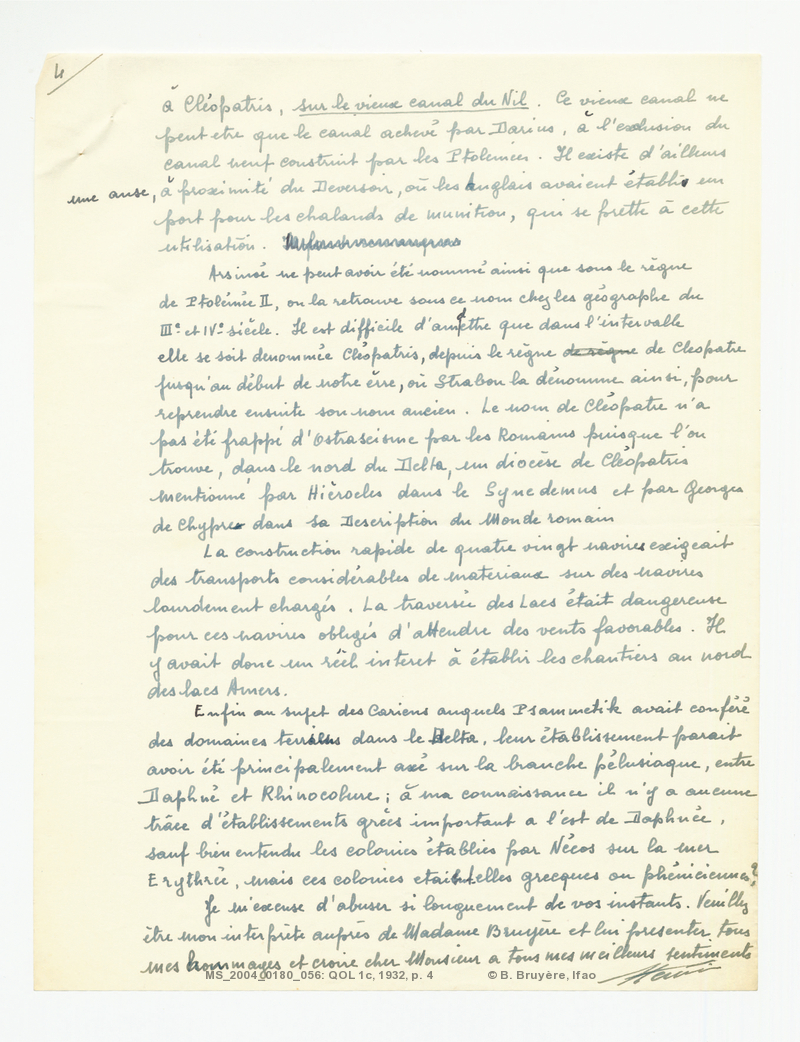 4
à Cléopatris, sur le vieux canal du Nil. Ce vieux canal ne
peut etre que le canal achevé par Darius, à l'exclusion du
canal neuf construit par les Ptolémées. Il existe d'ailleurs
une anse, à proximité du Deversoir, où les Anglais avaient établi un
port pour les chalands de munition, qui se prette à cette
utilisation.
Arsinoé ne peut avoir été nommé ainsi que sous le règne
de Ptolémée II, on la retrouve sous ce nom chez les géographe du
IIIe et IVe siècle. Il est difficile d'amettre que dans l'intervalle
elle se soit denommée Cléopatris, depuis le règne de règne de Cleopatre
jusqu'au début de notre érre, où Strabon la dénomme ainsi, pour
reprendre ensuite son nom ancien. Le nom de Cléopatre n'a
pas été frappé d'Ostrascisme par les Romains puisque l'on
trouve, dans le nord du Delta, un diocèse de Cléopatris
mentionné par Hiérocles dans le Synedemus et par Georges
de Chypre dans sa Description du Monde romain
La construction rapide de quatre vingt navires exigeait
des transports considérables de materiaux sur des navires
lourdement chargés. La traversée des Lacs était dangereuse
pour ces navires obligés d'attendre des vents favorables. Il
y avait donc un réel interet à établir les chantiers au nord
des lacs Amers.
Enfin au sujet des Cariens auquels Psammetik avait conféré
des domaines terriens dans le Delta, leur établissement parait
avoir été principalement axé sur la branche pélusiaque, entre
Daphné et Rhinocolure; à ma connaissance il n'y a aucune
trâce d'établissements grécs important a l'est de Daphnée,
sauf bien entendu les colonies établies par Nécos sur la mer
Erythrée, mais ces colonies etaient-elles grecques ou phéniciennes?
Je m'excuse d'abuser si longuement de vos instants. Veuillez
être mon interprète auprès de Madame Bruyère et lui presenter tous
mes hommages et croire cher Monsieur a tous mes meilleurs sentiments
MS_2004_00180_056: QOL 1c, 1932, p. 4 © B. Bruyère, Ifao